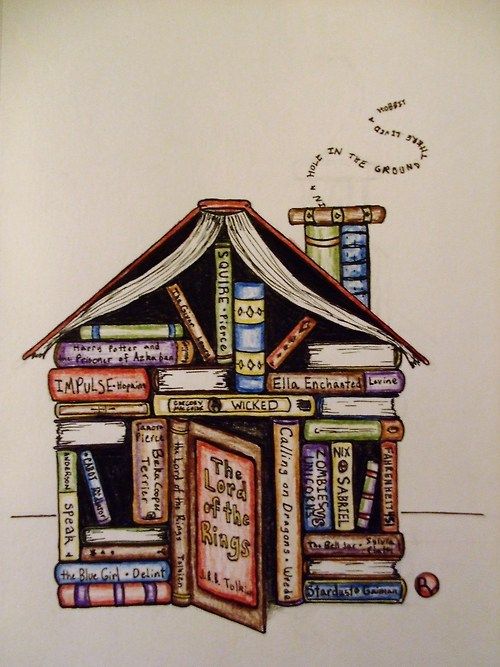 IN A HOLE IN THE GROUND THERE LIVED A HOBBIT
SQUIRE • Pierce
The Giver Lowry
Harry Potter and
the Prisoner of Azkaban
IMPULSE • Hopkins
Ella Enchanted Levine
GREGORY
MAGUIRE
WICKED
Tamora
Pierce
Beka Cooper
Terrier
the Lord of the Rings Tolkien
The
Lord
of the
Rings
J.R.R. Tolkien
Calling on Dragons • Wrede
ZOMBIES VS
UNICORNS
NIX SABRIEL
FAHRENHEIT 451
ANDERSON speak
CABOT
The Bell Jar • Sylvia
Plath
the Blue Girl • DeLint
Stardust • Gaiman
R